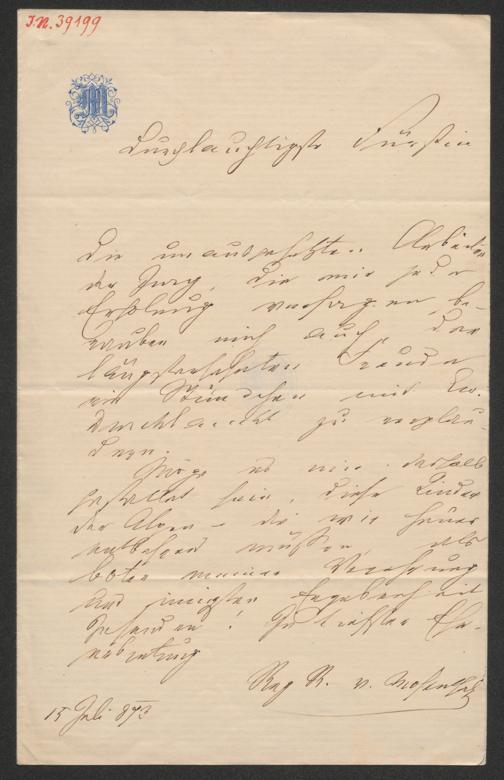 I.N. 39199
M
Durchlauchtigste Fürstin
die unausgesetzten Arbeiten
der Jury, die mir jede
Erholung versagen, be-
rauben mich auch der
längstersehnten Freude
ein Stündchen mit Ew.
Durchlaucht zu verplau-
dern.
Möge es mir deshalb
gestattet sein, diese Kinder
der Alpen – die wir heuer
entbehren müssen, als
boten meiner Verehrung
und innigsten Ergebenheit
zu senden! In tiefster Ehr-
erbietung
R. v. Mosenthal
15 Juli 873